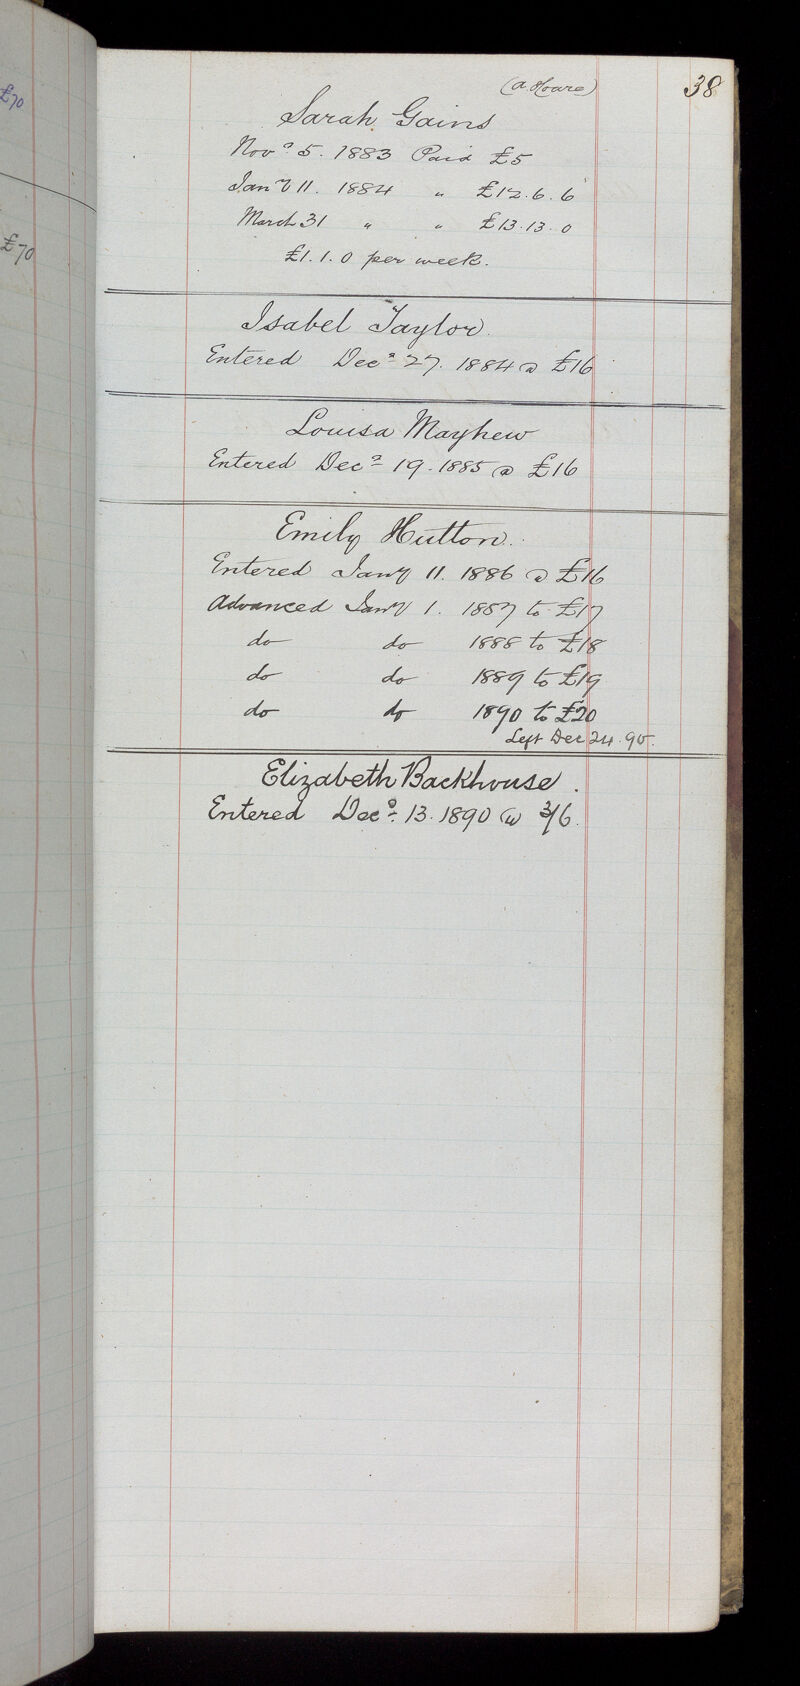 £70
£70
(A Hoare) 38
Sarah Gains
Novr 5. 1883 Paid £5
Jany 11. 1884 " £12.6.6
March 31 " " £13.13.0
£1.1.0 per week.
Isabel Taylor.
Entered Decr 27. 1884 @ £16
Louisa Mayhew
Entered Decr 19. 1885 @ £16
Emily Hutton.
Entered Jany 11. 1886 @ £16
Advanced Jany 1. 1887 to £17
do do 1888 to £18
do do 1889 to £19
do do 1890 to £20
Left Dec 24. 90.
Elizabeth Backhouse.
Entered Decr 13. 1890 @ 3/6.